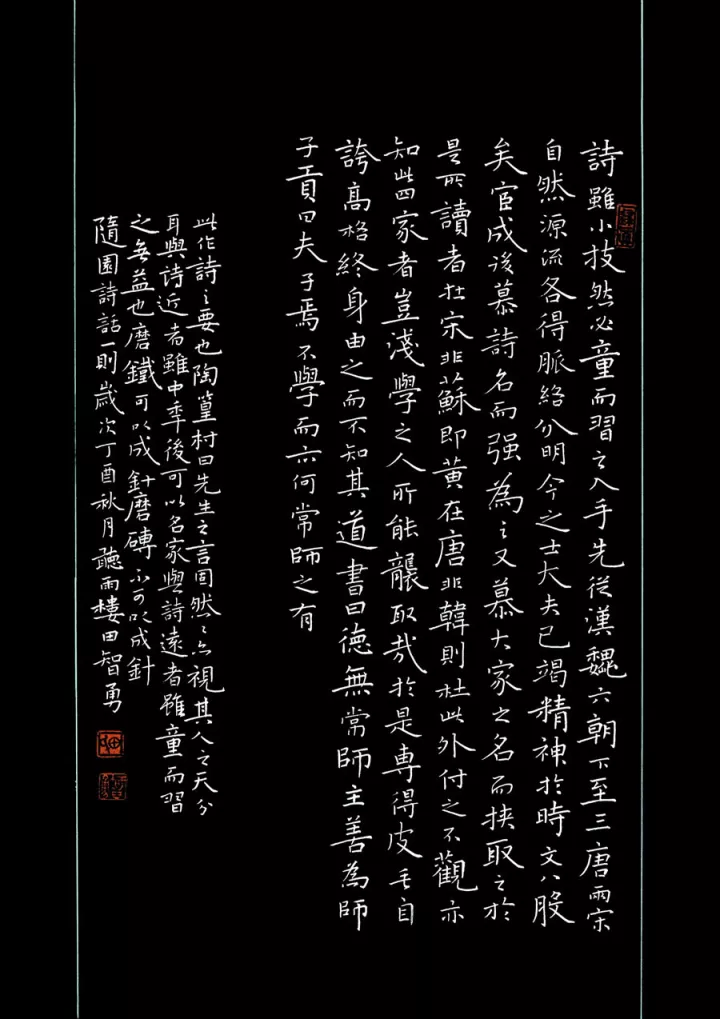 詩雖小技然必童而習之入手先從漢魏六朝下至三唐兩宋
自然源流各得脈絡分明今之士大夫已竭精神於時文八股
矣宦成後慕詩名而强為之又慕大家之名而挟取之於
是所讀者在宋非蘇即黄在唐非韓則杜此外付之不觀亦
知此四家者豈淺學之人所能襲取哉於是專得皮毛自
誇高格終身由之而不知其道書曰德無常師主善為師
子貢曰夫子焉不學而亦何常師之有
此作詩之要也陶篁村曰先生之言固然然亦視其人之天分
耳與诗近者雖中季後可以名家與詩遠者雖童而習
之無益也磨鐵可以成針磨磚不可以成針
隨園詩話一則歲次丁酉秋月聽雨樓田智勇